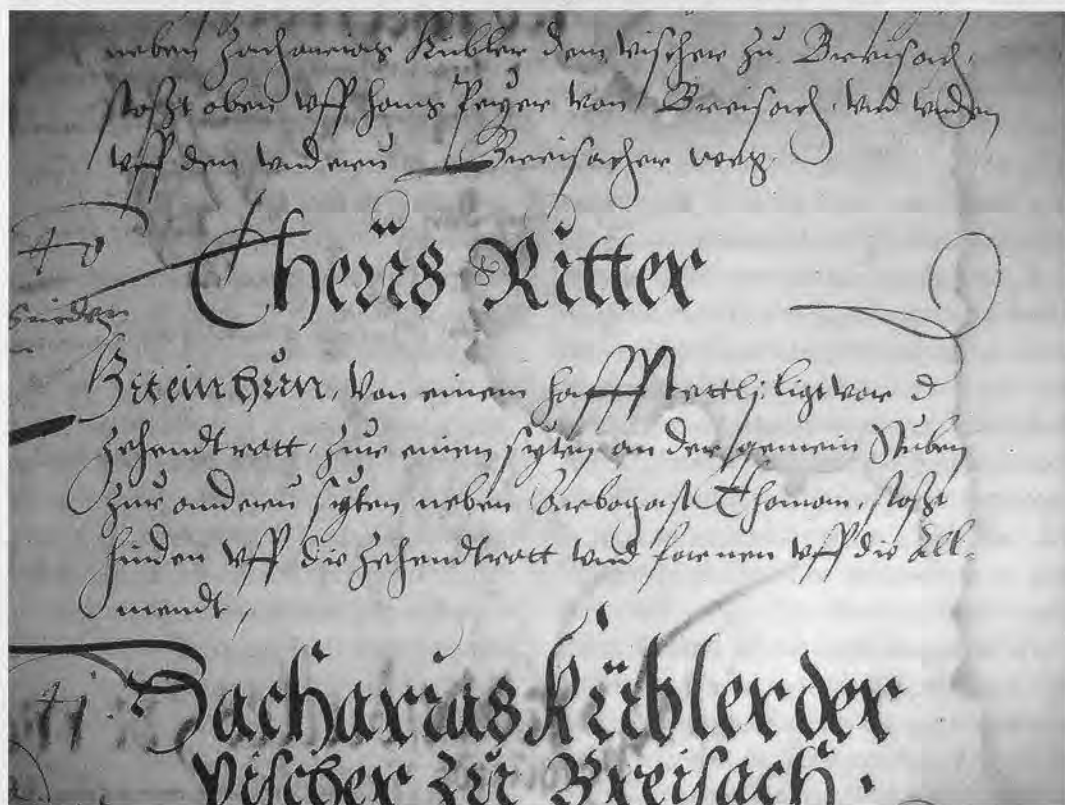 neben Zacharias Kübler dem vischer zu Breisach,
stoßt oben vff Hans Peyer von Breisach, vnd vnden
vff den vnderen Breisacher weg.
Theüs Ritter
Git ein Hun, Von einem hoffstettli, ligt vor d
Zehendtrott, Zur einen syten an der gemein Stuben
Zur anderen syten neben Arbogast Thoman, stoßt
hinden vff die Zehendtrott vnd fornen vff die All-
mendt,
Zacharias Kübler der
vischer zu Breisach.